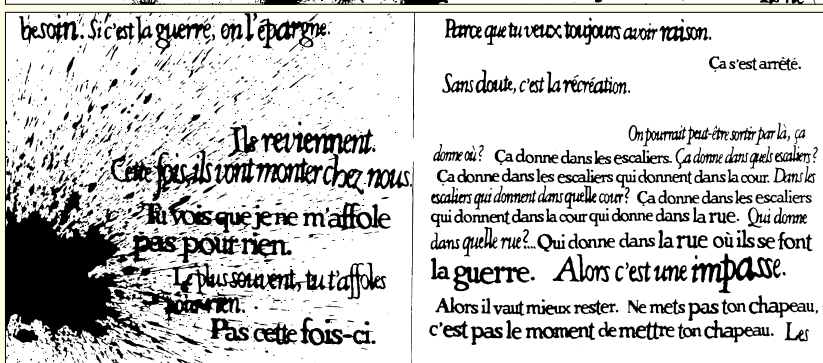 besoin. Si c'est la guerre, on l'épargne.
Ils reviennent.
Cette fois, ils vont monter chez nous.
Tu vois que je ne m'affole
pas pour rien.
Le plus souvent, tu t'affoles
pour rien.
Pas cette fois-ci.
Parce que tu veux toujours avoir raison.
Ça s'est arrêté.
Sans doute, c'est la récréation.
On pourrait peut-être sortir par là, ça
donne où? Ça donne dans les escaliers. Ça donne dans quels escaliers?
Ça donne dans les escaliers qui donnent dans la cour. Dans les
escaliers qui donnent dans quelle cour? Ça donne dans les escaliers
qui donnent dans la cour qui donne dans la rue. Qui donne
dans quelle rue?... Qui donne dans la rue où ils se font
la guerre. Alors c'est une impasse.
Alors il vaut mieux rester. Ne mets pas ton chapeau,
c'est pas le moment de mettre ton chapeau. Les